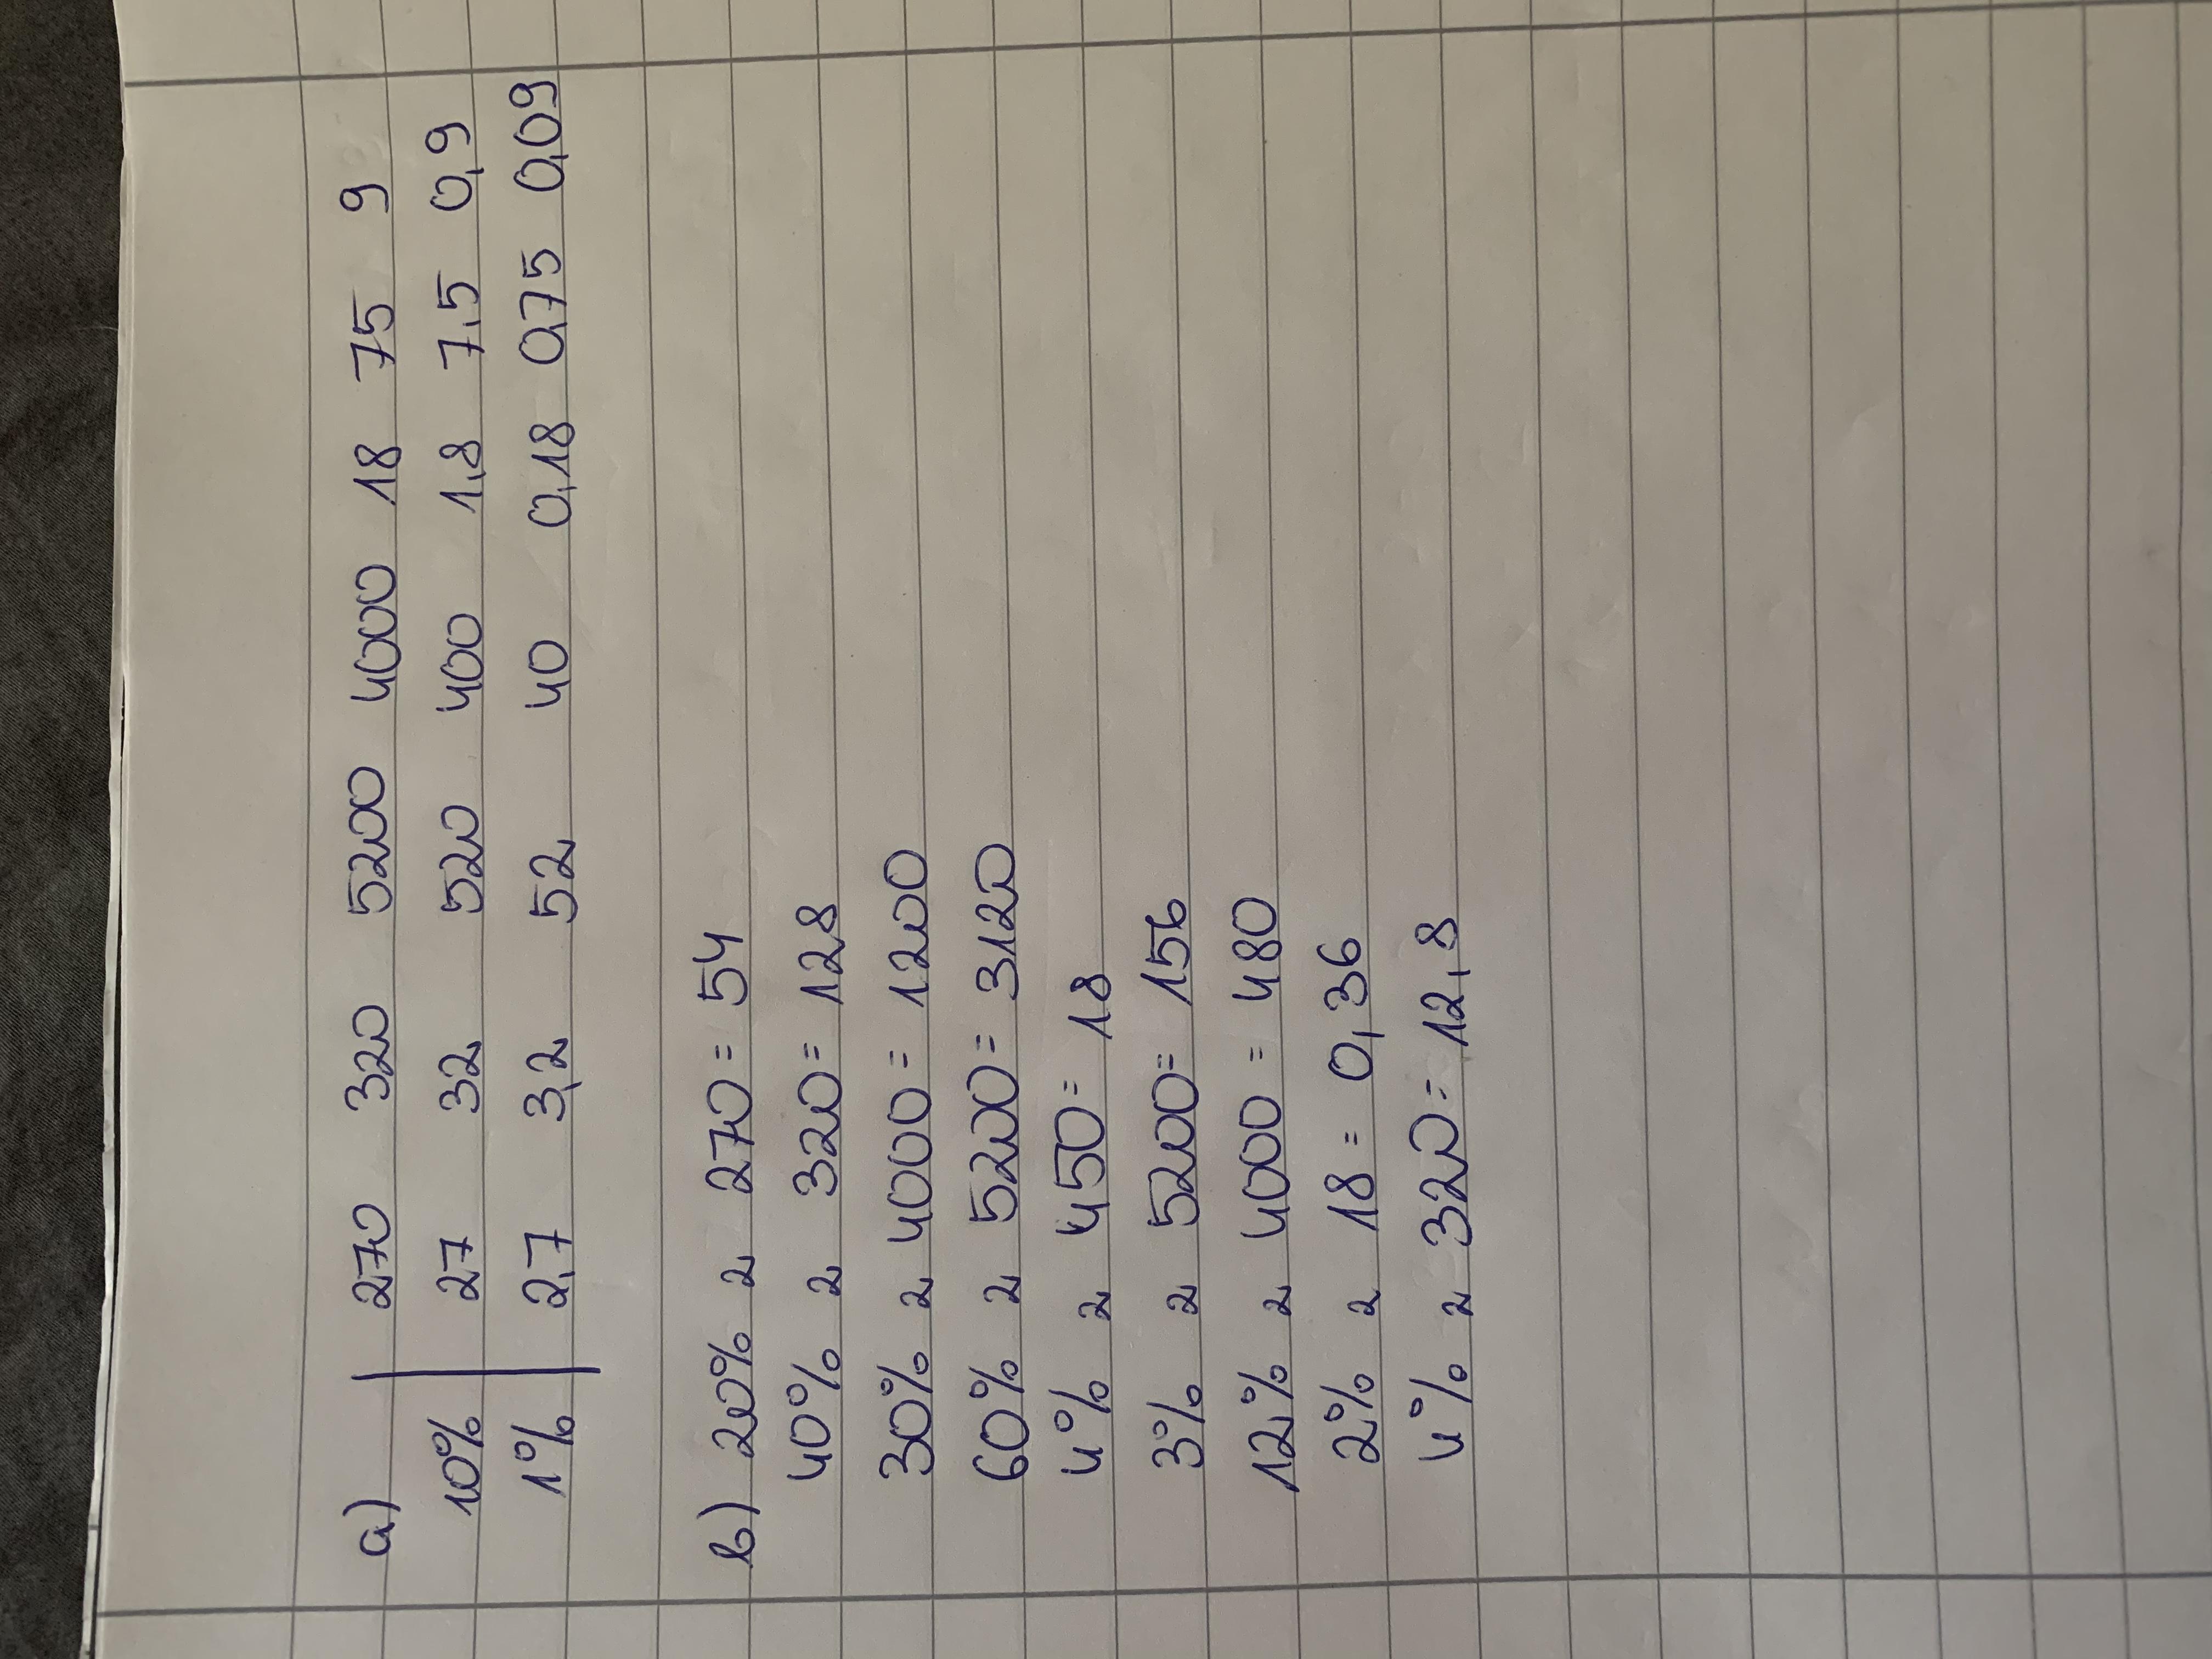 a) 270 320 5200 4000 18 75 9
10% 27 32 520 400 1,8 7,5 0,9
1% 2,7 3,2 52 40 0,18 0,75 0,09
b) 20% z 270 = 54
40% z 320 = 128
30% z 4000 = 1200
60% z 5200 = 3120
4% z 450 = 18
3% z 5200 = 156
12% z 4000 = 480
2% z 18 = 0,36
4% z 320 = 12,8